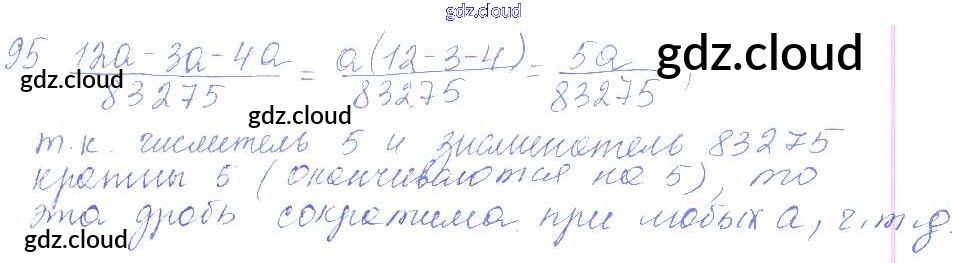 gdz.cloud
95 (12a - 3a - 4a)/83275 = a(12-3-4)/83275 = 5a/83275,
gdz.cloud
gdz.cloud
gdz.cloud
т.к. числитель 5 и знаменатель 83275
кратны 5 (оканчиваются на 5), то
эта дробь сократима при любых a, ч.т.д.
gdz.cloud
gdz.cloud